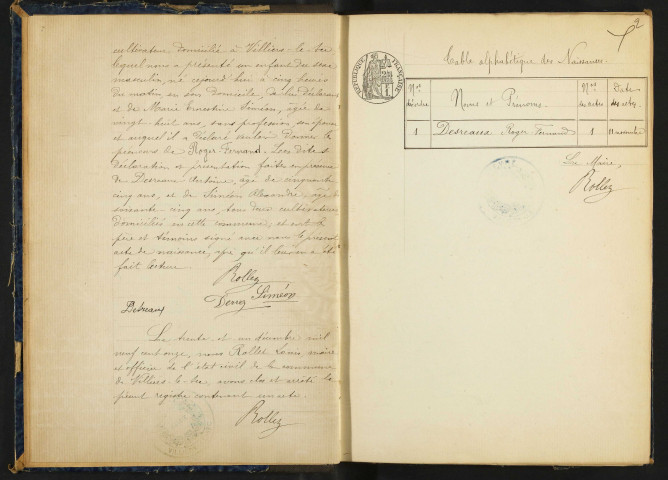 cultivateur domicilié à Villiers-le-Sec
lequel nous a présenté un enfant du sexe
masculin, né ce jourd'hui à cinq heures
du matin en son domicile, de lui déclarant
et de Marie Ernestine Siméon, âgée de
vingt huit ans, sans profession, son épouse
et auquel il a déclaré vouloir donner les
prénoms de Roger-Fernand. Les dites
déclaration et présentation faites en présence
de Desreaux Antoine, âgé de cinquante
cinq ans, et de Siméon Alexandre, âgé de
soixante cinq ans, tous deux cultivateurs
domiciliés en cette commune, et ont le
père et témoins signé avec nous le présent
acte de naissance, après qu'il leur en a été
fait lecture.
Rollez
Siméon
Desreaux
Le trente et un décembre mil
neuf cent onze, nous Rollet Louis, maire
et officier de l'état civil de la commune
de Villiers-le-Sec, avons clos et arrêté le
présent registre contenant un acte.
Rollez
2
Table alphabétique des Naissances
RÉPUBLIQUE FRANÇAISE
Nos d'ordre Noms et Prénoms Nos des actes Dates des actes
1 Desreaux Roger Fernand 1 11 novembre
Le Maire,
Rollez